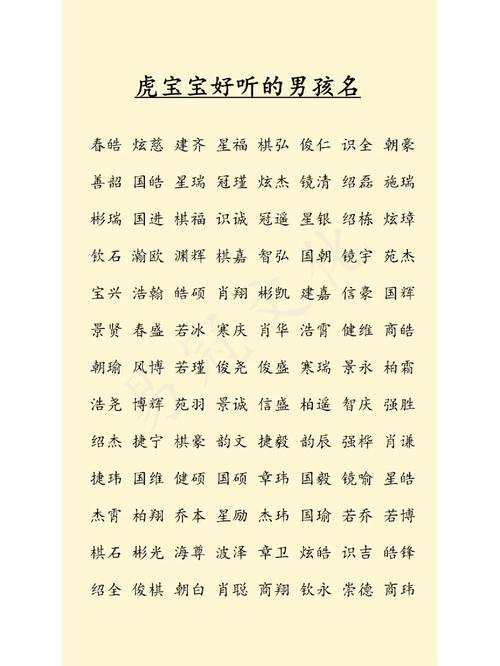 虎宝宝好听的男孩名
春皓 炫慈 建齐 星福 棋弘 俊仁 识全 朝豪
善韶 国皓 星瑞 冠瑾 炫杰 镜清 绍磊 施瑞
彬瑞 国进 棋福 识诚 冠遥 星银 绍栋 炫璋
钦石 瀚欧 渊辉 棋嘉 智弘 国朝 镜宇 苑杰
宝兴 浩翰 皓硕 肖翔 彬凯 建嘉 信豪 国辉
景贤 春盛 若冰 寒庆 肖华 浩霄 健维 商皓
朝瑜 风博 若瑾 俊尧 俊盛 寒瑞 景永 柏霜
浩尧 博辉 苑羽 景诚 信盛 柏遥 智庆 强胜
绍杰 捷宁 棋豪 韵文 捷毅 韵辰 强桦 肖谦
捷玮 国维 健硕 国硕 章玮 国毅 镜喻 星皓
杰霄 柏翔 乔本 星励 杰玮 国瑜 若乔 若博
棋石 彬光 海尊 波泽 章卫 炫皓 识吉 皓锋
绍全 俊棋 朝白 肖聪 商翔 钦永 崇德 商玮
易冠文化